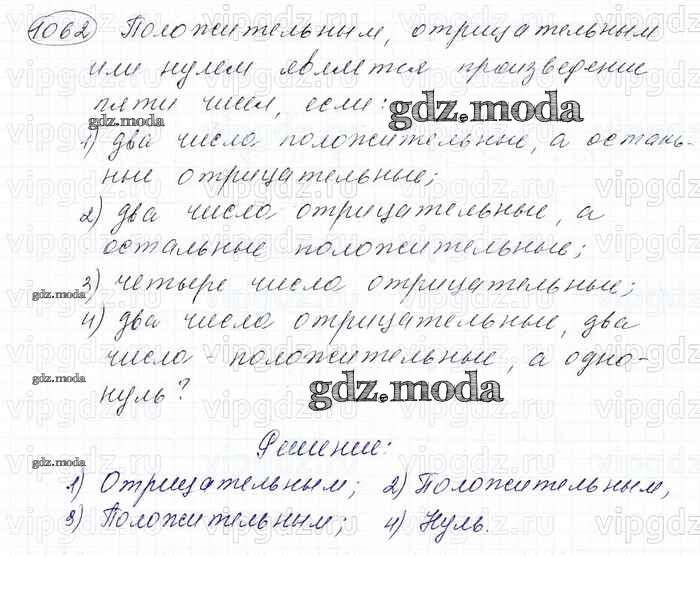 1062 Положительным, отрицательным
или нулем является произведение
пяти чисел, если:
gdz.moda
gdz.moda
1) два числа положительные, а осталь-
ные отрицательные;
2) два числа отрицательные, а
остальные положительные;
3) четыре числа отрицательные;
gdz.moda
4) два числа отрицательные, два
числа - положительные, а одно-
gdz.moda
нуль?
gdz.moda
Решение:
gdz.moda
1) Отрицательным; 2) Положительным,
3) Положительным; 4) Нуль.